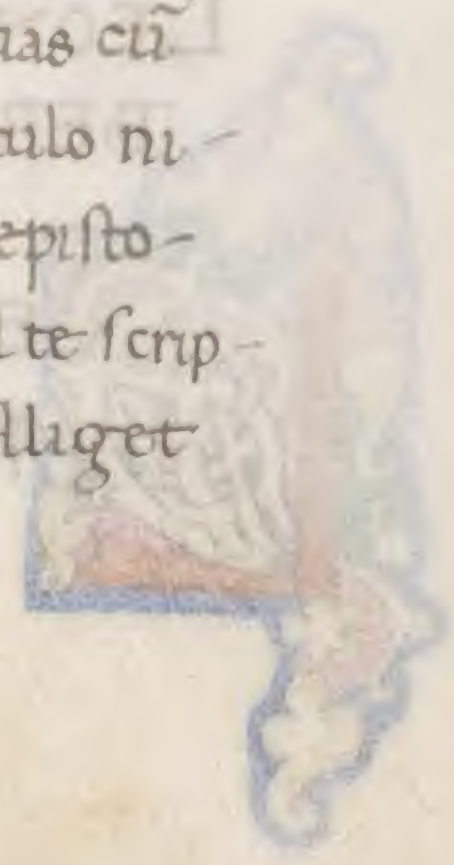 uas cū
culo ni-
episto-
l te scrip-
lliget